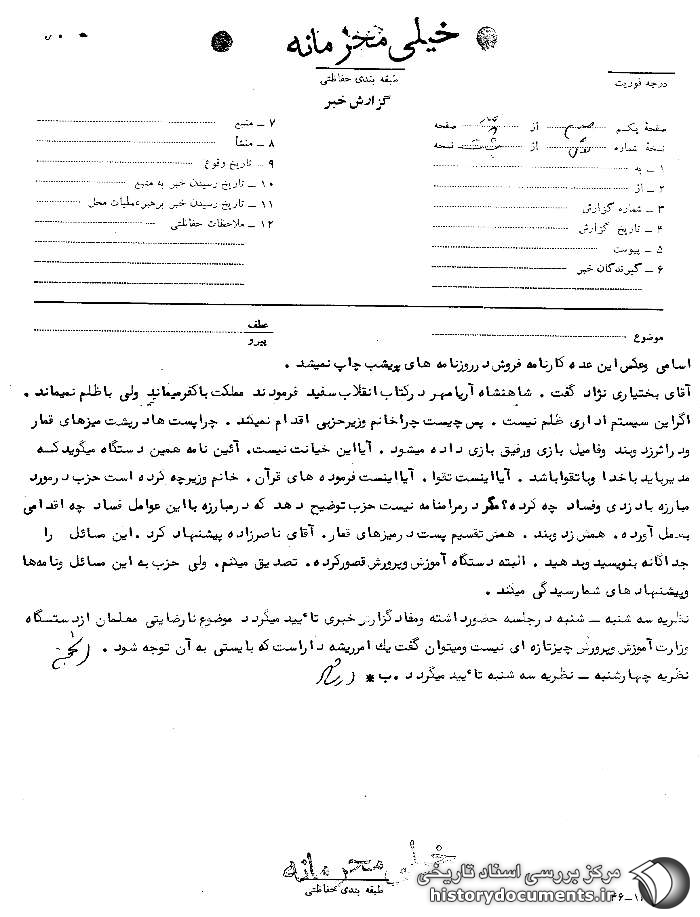 خیلی محرمانه
طبقه بندی حفاظتی
گزارش خبر
درجه فوریت
صفحهٔ یکم از صفحه
نسخهٔ شماره از نسخه
۱ ـ به
۲ ـ از
۳ ـ شماره گزارش
۴ ـ تاریخ گزارش
۵ ـ پیوست
۶ ـ گیرندگان خبر
۷ ـ منبع
۸ ـ منشأ
۹ ـ تاریخ وقوع
۱۰ ـ تاریخ رسیدن خبر به منبع
۱۱ ـ تاریخ رسیدن خبر برهبرعملیات محل
۱۲ ـ ملاحظات حفاظتی
موضوع
عطف
پیرو
اسامی وعکس این عده کارنامه فروش درروزنامه های پریشب چاپ نمیشد .
آقای بختیاری نژاد گفت . شاهنشاه آریامهر درکتاب انقلاب سفید فرمودند مملکت باکفرمیماند ولی باظلم نمیماند .
اگراین سیستم اداری ظلم نیست . پس چیست چراخانم وزیرحزبی اقدام نمیکند . چراپست هادرپشت میزهای قمار
ودراثرزد وبند وفامیل بازی ورفیق بازی داده میشود . آیااین خیانت نیست. آئین نامه همین دستگاه میگوید که
مدیرباید باخدا وباتقواباشد . آیااینست تقوا . آیااینست فرموده های قرآن . خانم وزیرچه کرده است حزب درمورد
مبارزه بادزدی وفساد چه کرده؟ مگر درمرامنامه نیست حزب توضیح دهد که درمبارزه بااین عوامل فساد چه اقدامی
بعمل آورده. همش زد وبند . همش تقسیم پست درمیزهای قمار. آقای ناصرزاده پیشنهاد کرد .این مسائل را
جداگانه بنویسید وبدهید . البته دستگاه آموزش وپرورش قصورکرده. تصدیق میکنم. ولی حزب به این مسائل ونامه‌ها
وپیشنهادهای شمارسیدگی میکند .
نظریه سه شنبه ـ شنبه درجلسه حضورداشته ومفادگزارش خبری تائیدمیگردد موضوع نارضایتی معلمان ازدستگاه
وزارت آموزش وپرورش چیزتازه ای نیست ومیتوان گفت یك امرریشه داراست که بایستی به آن توجه شود .
نظریه چهارشنبه ـ نظریه سه شنبه تائید میگردد .ب *
خیلی محرمانه
طبقه بندی حفاظتی
مرکز بررسی اسناد تاریخی
historydocuments.ir